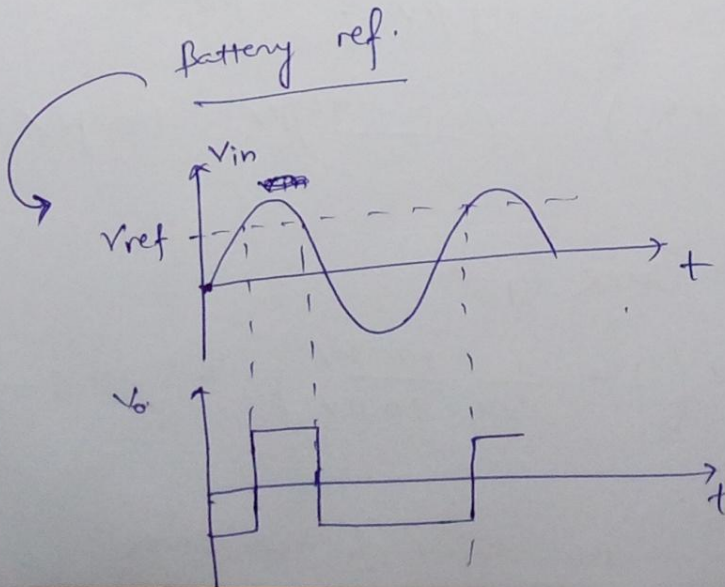 Battery ref.
Vin
Vref
t
Vo
t